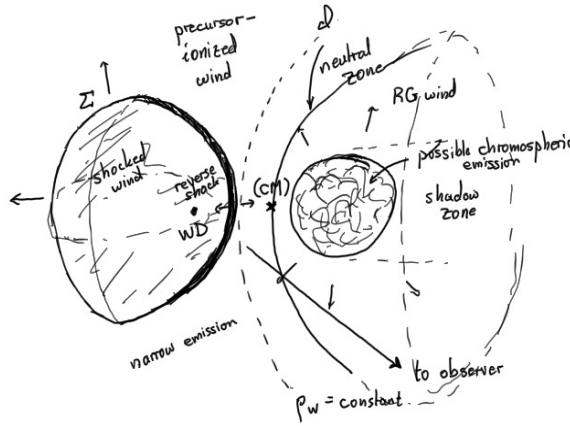 precursor-
ionized
wind
d
neutral
zone
RG wind
Σ
possible chromospheric
emission
shocked
wind
reverse
shock
(CM)
shadow
zone
WD
narrow emission
to observer
ρw = constant